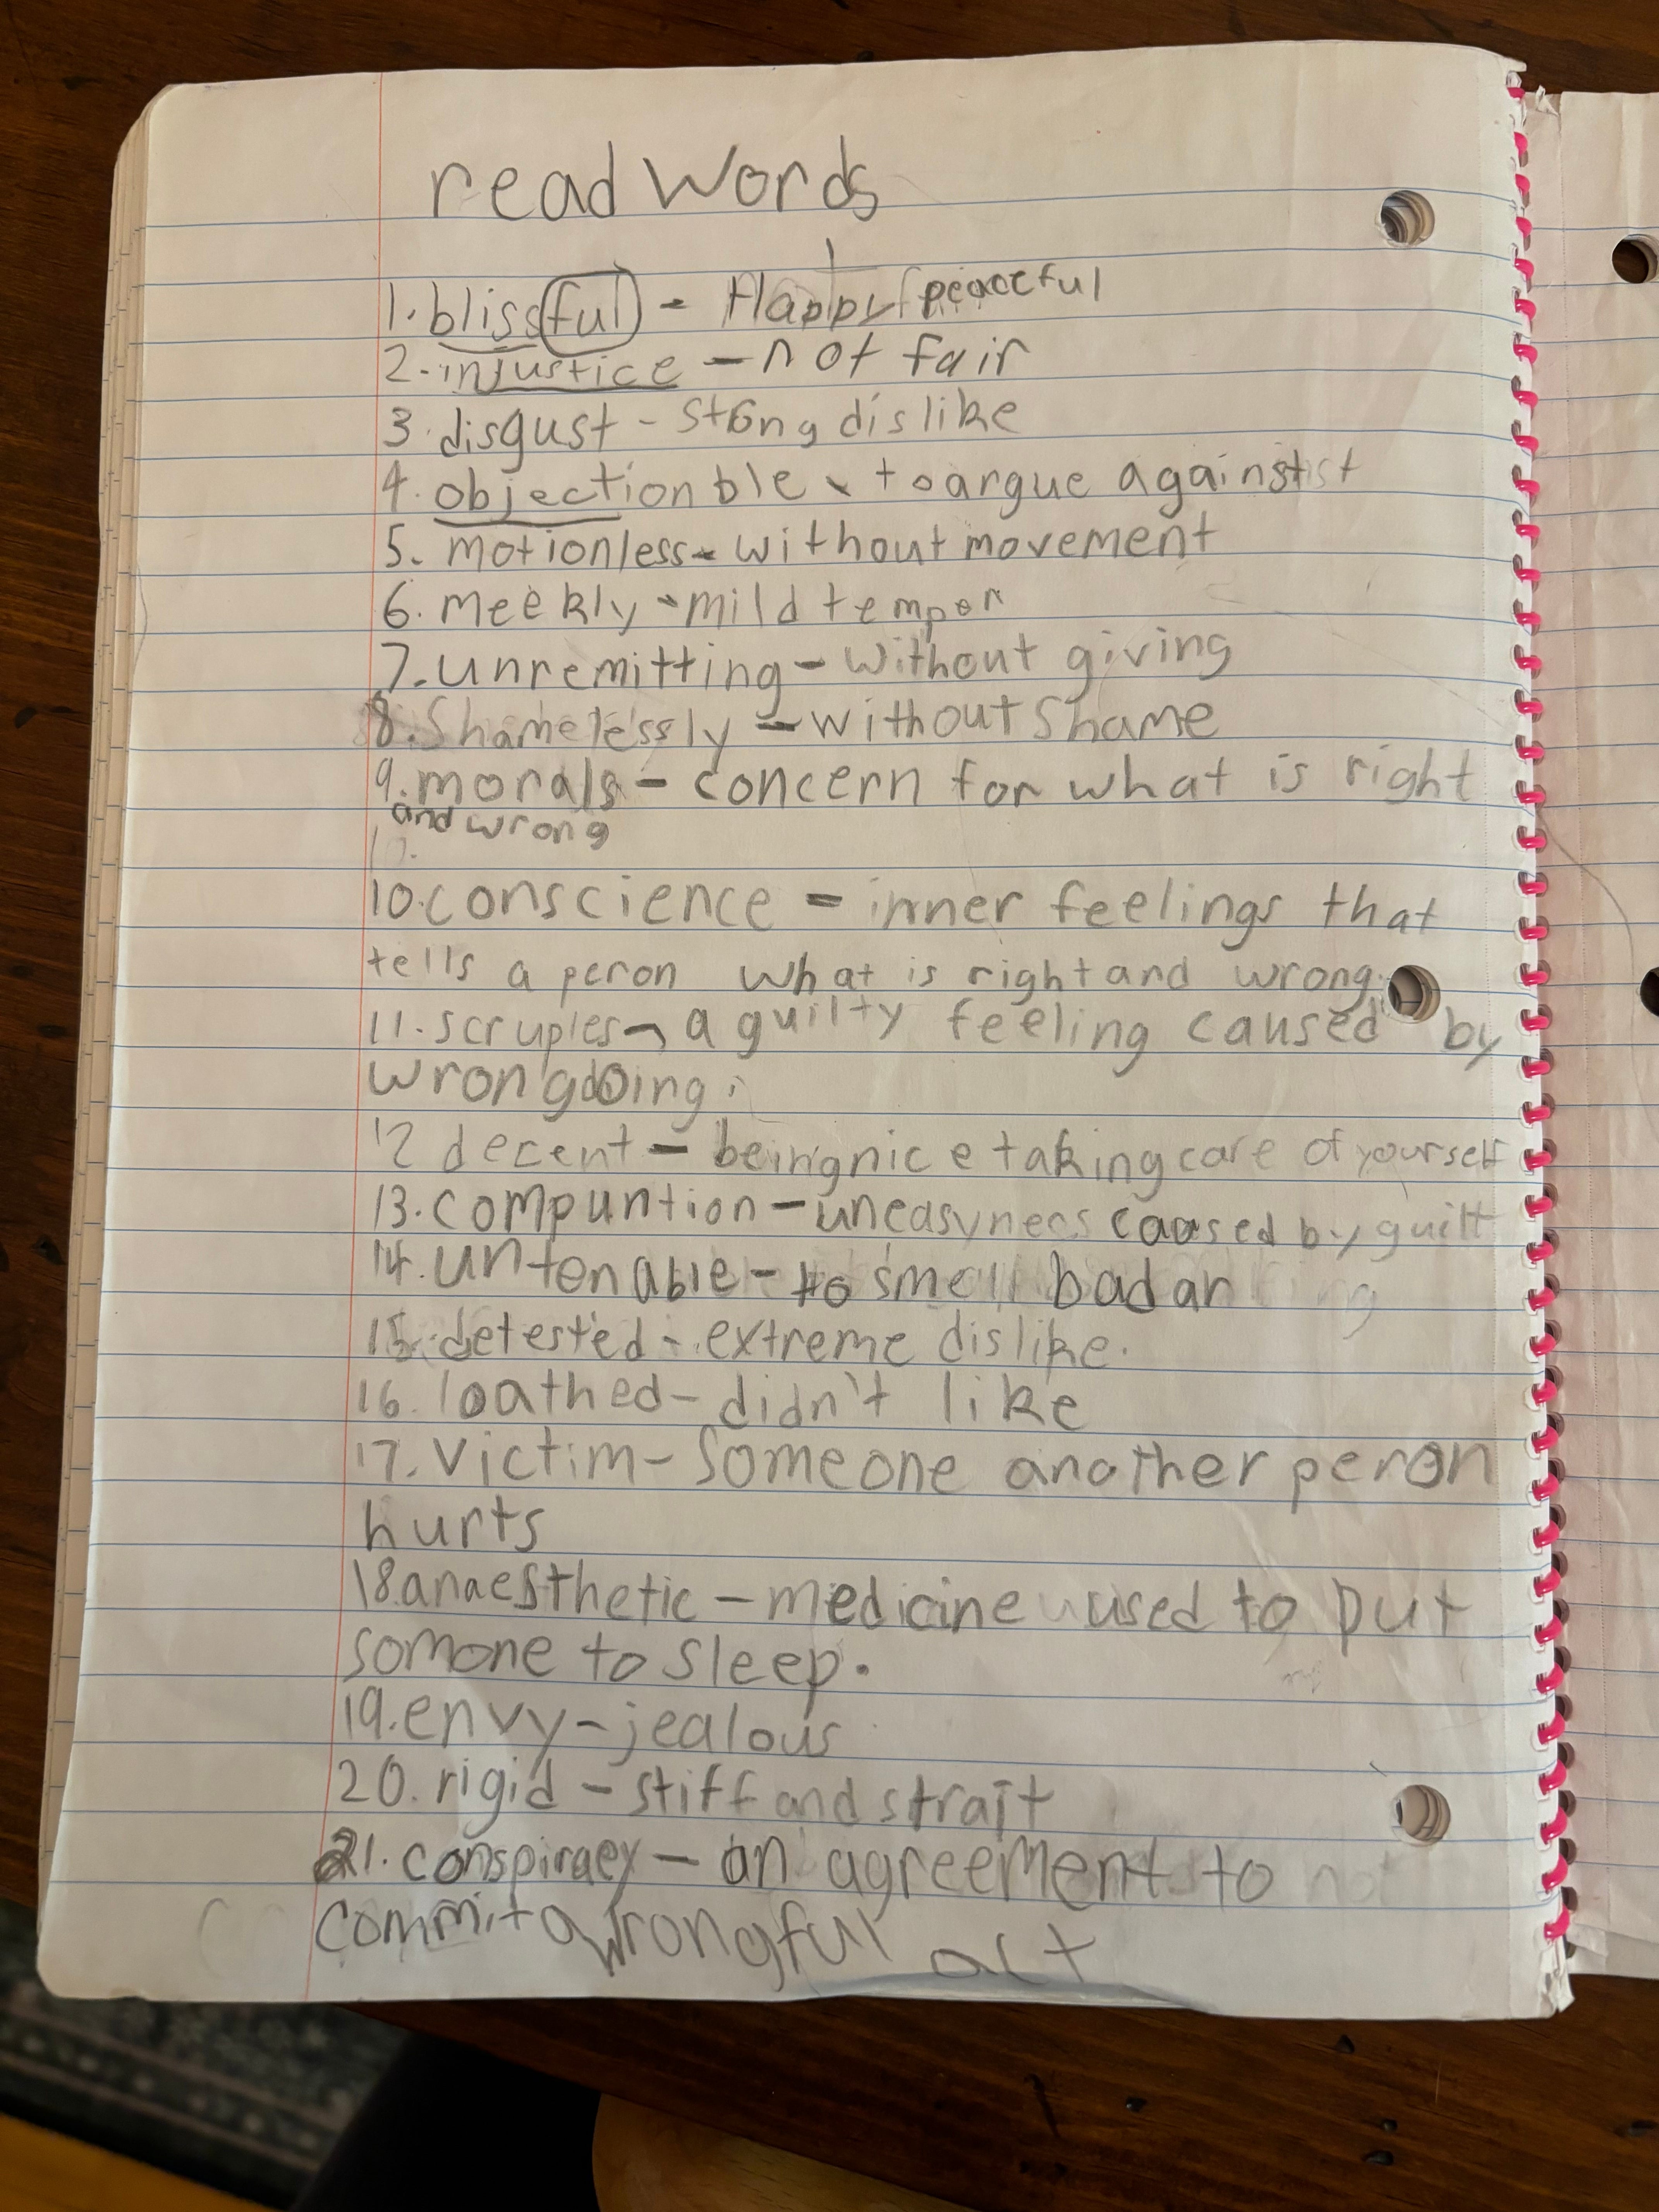 read words
1. blissful - Happy peaceful
2. injustice - not fair
3. disgust - strong dislike
4. objectionble - to argue against
5. motionless - without movement
6. meekly - mild temper
7. unremitting - without giving
8. Shamelessly - without shame
9. morals - concern for what is right
and wrong
10. conscience = inner feelings that
tells a peron what is right and wrong.
11. scruples - a guilty feeling caused by
wrongdoing.
12 decent - being nice taking care of yourself
13. compuntion - uneasyness caused by guilt
14. untenable - to smell bad an
15. detested - extreme dislike.
16. loathed - didn't like
17. Victim - Someone another peron
hurts
18. anaesthetic - medicine used to put
somone to sleep.
19. envy - jealous
20. rigid - stiff and strait
21. conspiracy - an agreement to
commit a wrongful act